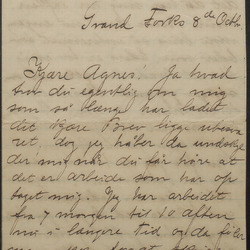 Grand Forks 8de Octb.
Kjære Agnes! Ja hvad
tror du egentlig om mig
som så længe har ladet
dit kjære Brev ligge ubesva
ret, dog jeg håber du undskyl
der mig når du får høre at
det er arbeide som har op
taget mig. Jeg har arbeidet
fra 7 morgen til 10 aften
nu i længere tid og da föler